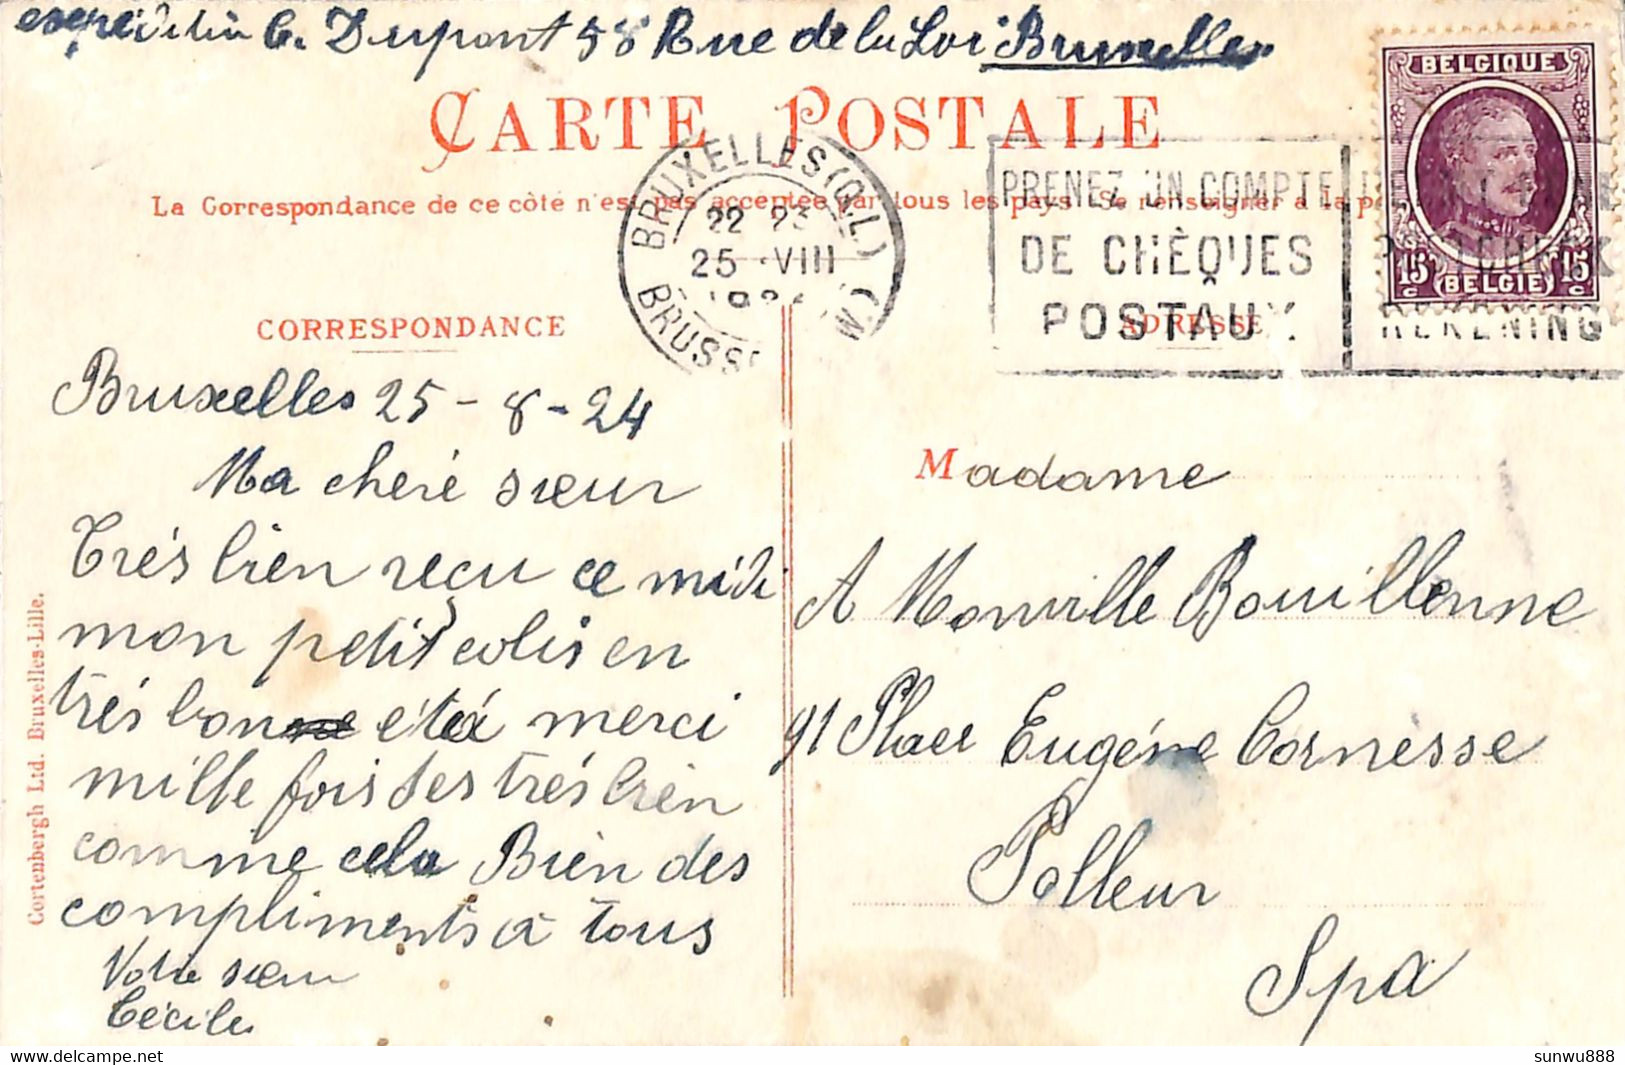 C. Dupont 58 Rue de la Loi Bruxelles
CARTE POSTALE
La Correspondance de ce côté n'est pas acceptée par tous les pays. Se renseigner à la
BRUXELLES (Q.L.)
22 23
25 VIII
BRUSS
PRENEZ UN COMPTE
DE CHÈQUES
POSTAUX
REKENING
BELGIQUE
15 c BELGIE 15 c
CORRESPONDANCE
ADRESSE
Bruxelles 25-8-24
Ma cheré sœur
Trés bien reçu ce midi
mon petit colis en
trés bonne état merci
mille fois des trés bien
comme cela Bien des
compliments à tous
Votre sœur
Cécile
Madame
A Monville Bouillenne
91 Place Eugéne Cornesse
Polleur
Spa
Cortenbergh Ltd. Bruxelles-Lille.
sunwu888